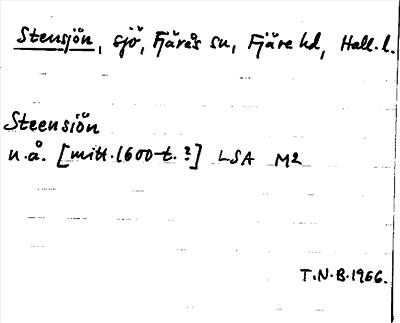 Stensjön, sjö, Fjärås sn, Fjäre hd, Hall. l.
Steensiön
u.å. [mitt. 1600-t.?] LSA M2
T.N.B. 1966.